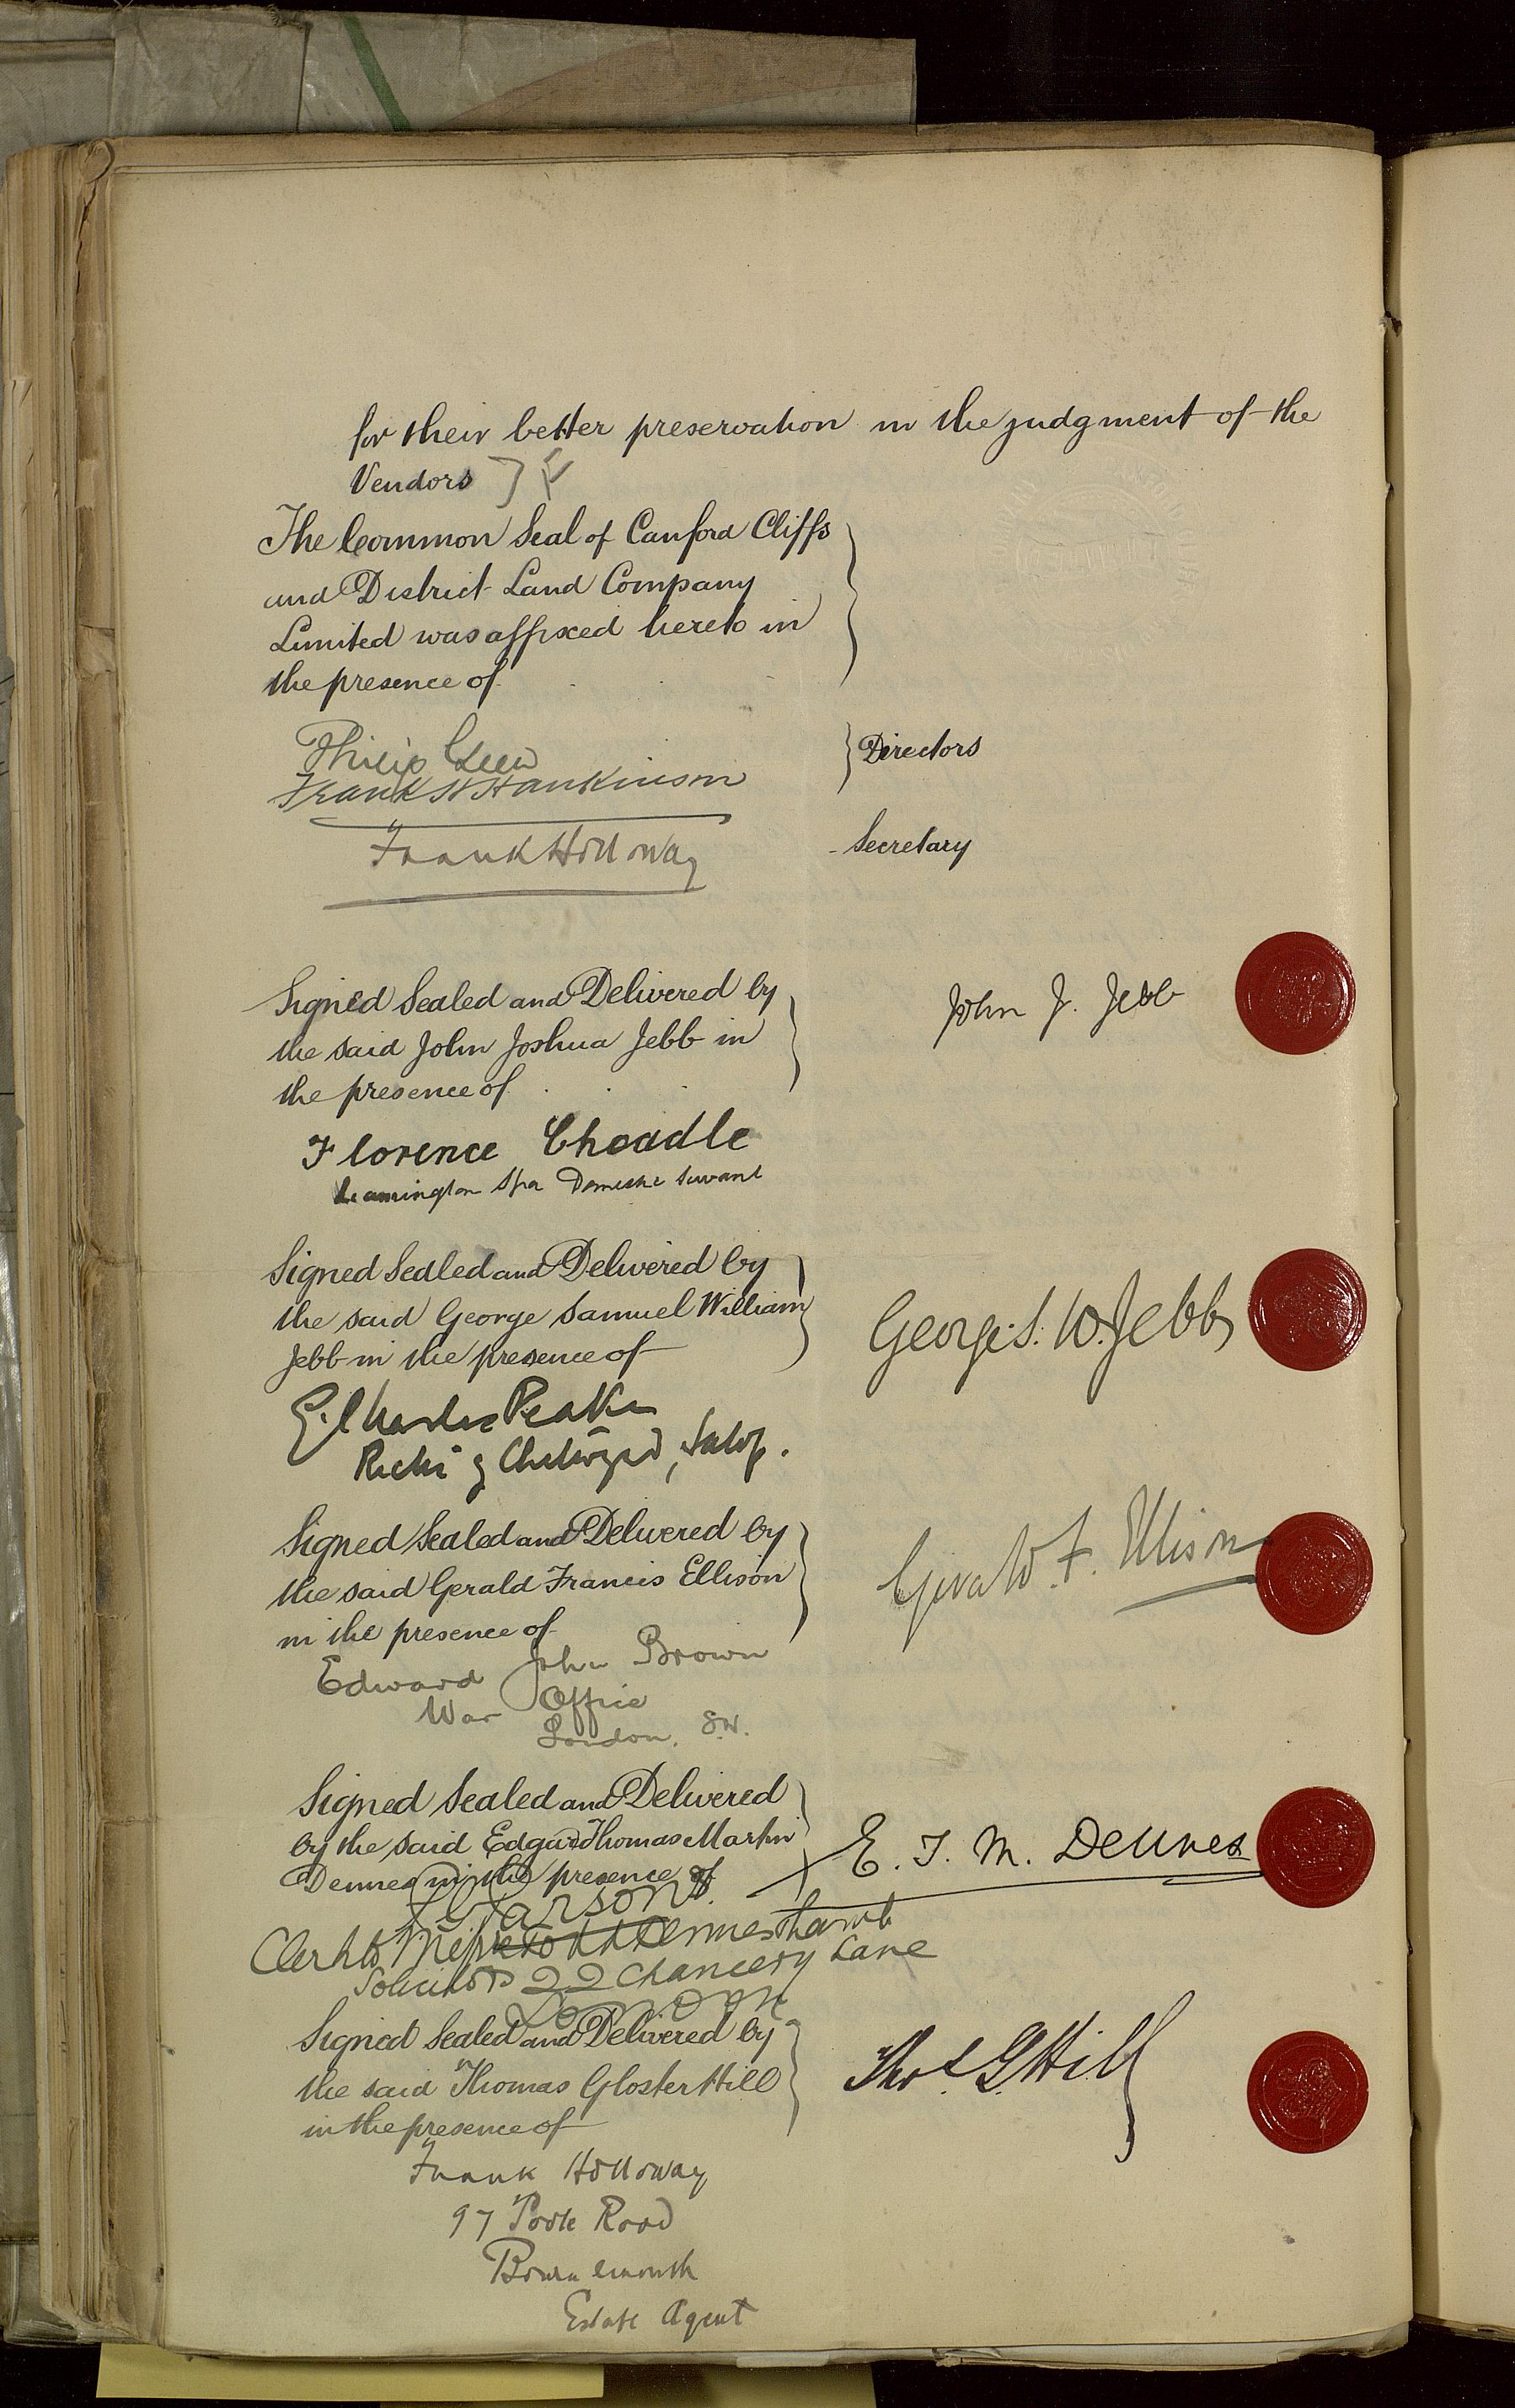 for their better preservation in the judgment of the
Vendors
The Common Seal of Canford Cliffs
and District Land Company
Limited was affixed hereto in
the presence of
Philip Green
Frank W Hankinson
Directors
Frank Holloway
Secretary
Signed Sealed and Delivered by
the said John Joshua Jebb in
the presence of
John J. Jebb
Florence Cheadle
Leamington Spa Domestic Servant
Signed Sealed and Delivered by
the said George Samuel William
Jebb in the presence of
George S. W. Jebb
E. Charles Peake
Rector of Chetwynd, Salop.
Signed Sealed and Delivered by
the said Gerald Francis Ellison
in the presence of
Gerald F. Ellison
Edward John Brown
War Office
London. S.W.
Signed Sealed and Delivered
by the said Edgar Thomas Martin
Dennes in the presence of
E. T. M. Dennes
Parsons
Clerk to Dennes & Lamb
Solicitors 22 Chancery Lane
London
Signed Sealed and Delivered by
the said Thomas Gloster Hill
in the presence of
Thos G Hill
Frank Holloway
97 Poole Road
Bournemouth
Estate Agent